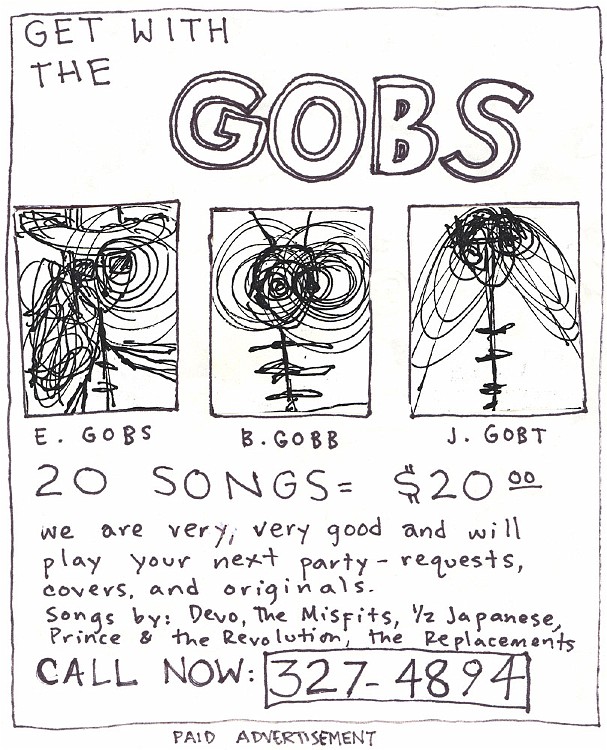 GET WITH
THE
GOBS
E. GOBS
B. GOBB
J. GOBT
20 SONGS= $20 00
we are very, very good and will
play your next party - requests,
covers, and originals.
Songs by: Devo, The Misfits, 1/2 Japanese,
Prince & the Revolution, the Replacements
CALL NOW: 327-4894
PAID ADVERTISEMENT